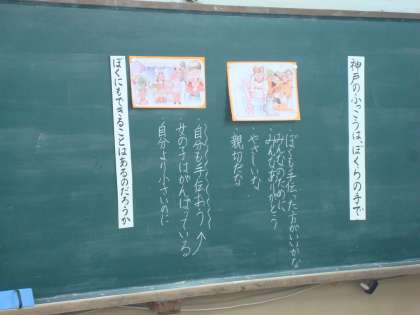 神戸のふっこうは、ぼくらの手で
ぼくも手伝った方がいいかな
みんなのために
みんなありがとう
・やさしいな
・親切だな
・自分も手伝おう
女の子はがんばっている
・自分より小さいのに
ぼくにもできることはあるのだろうか